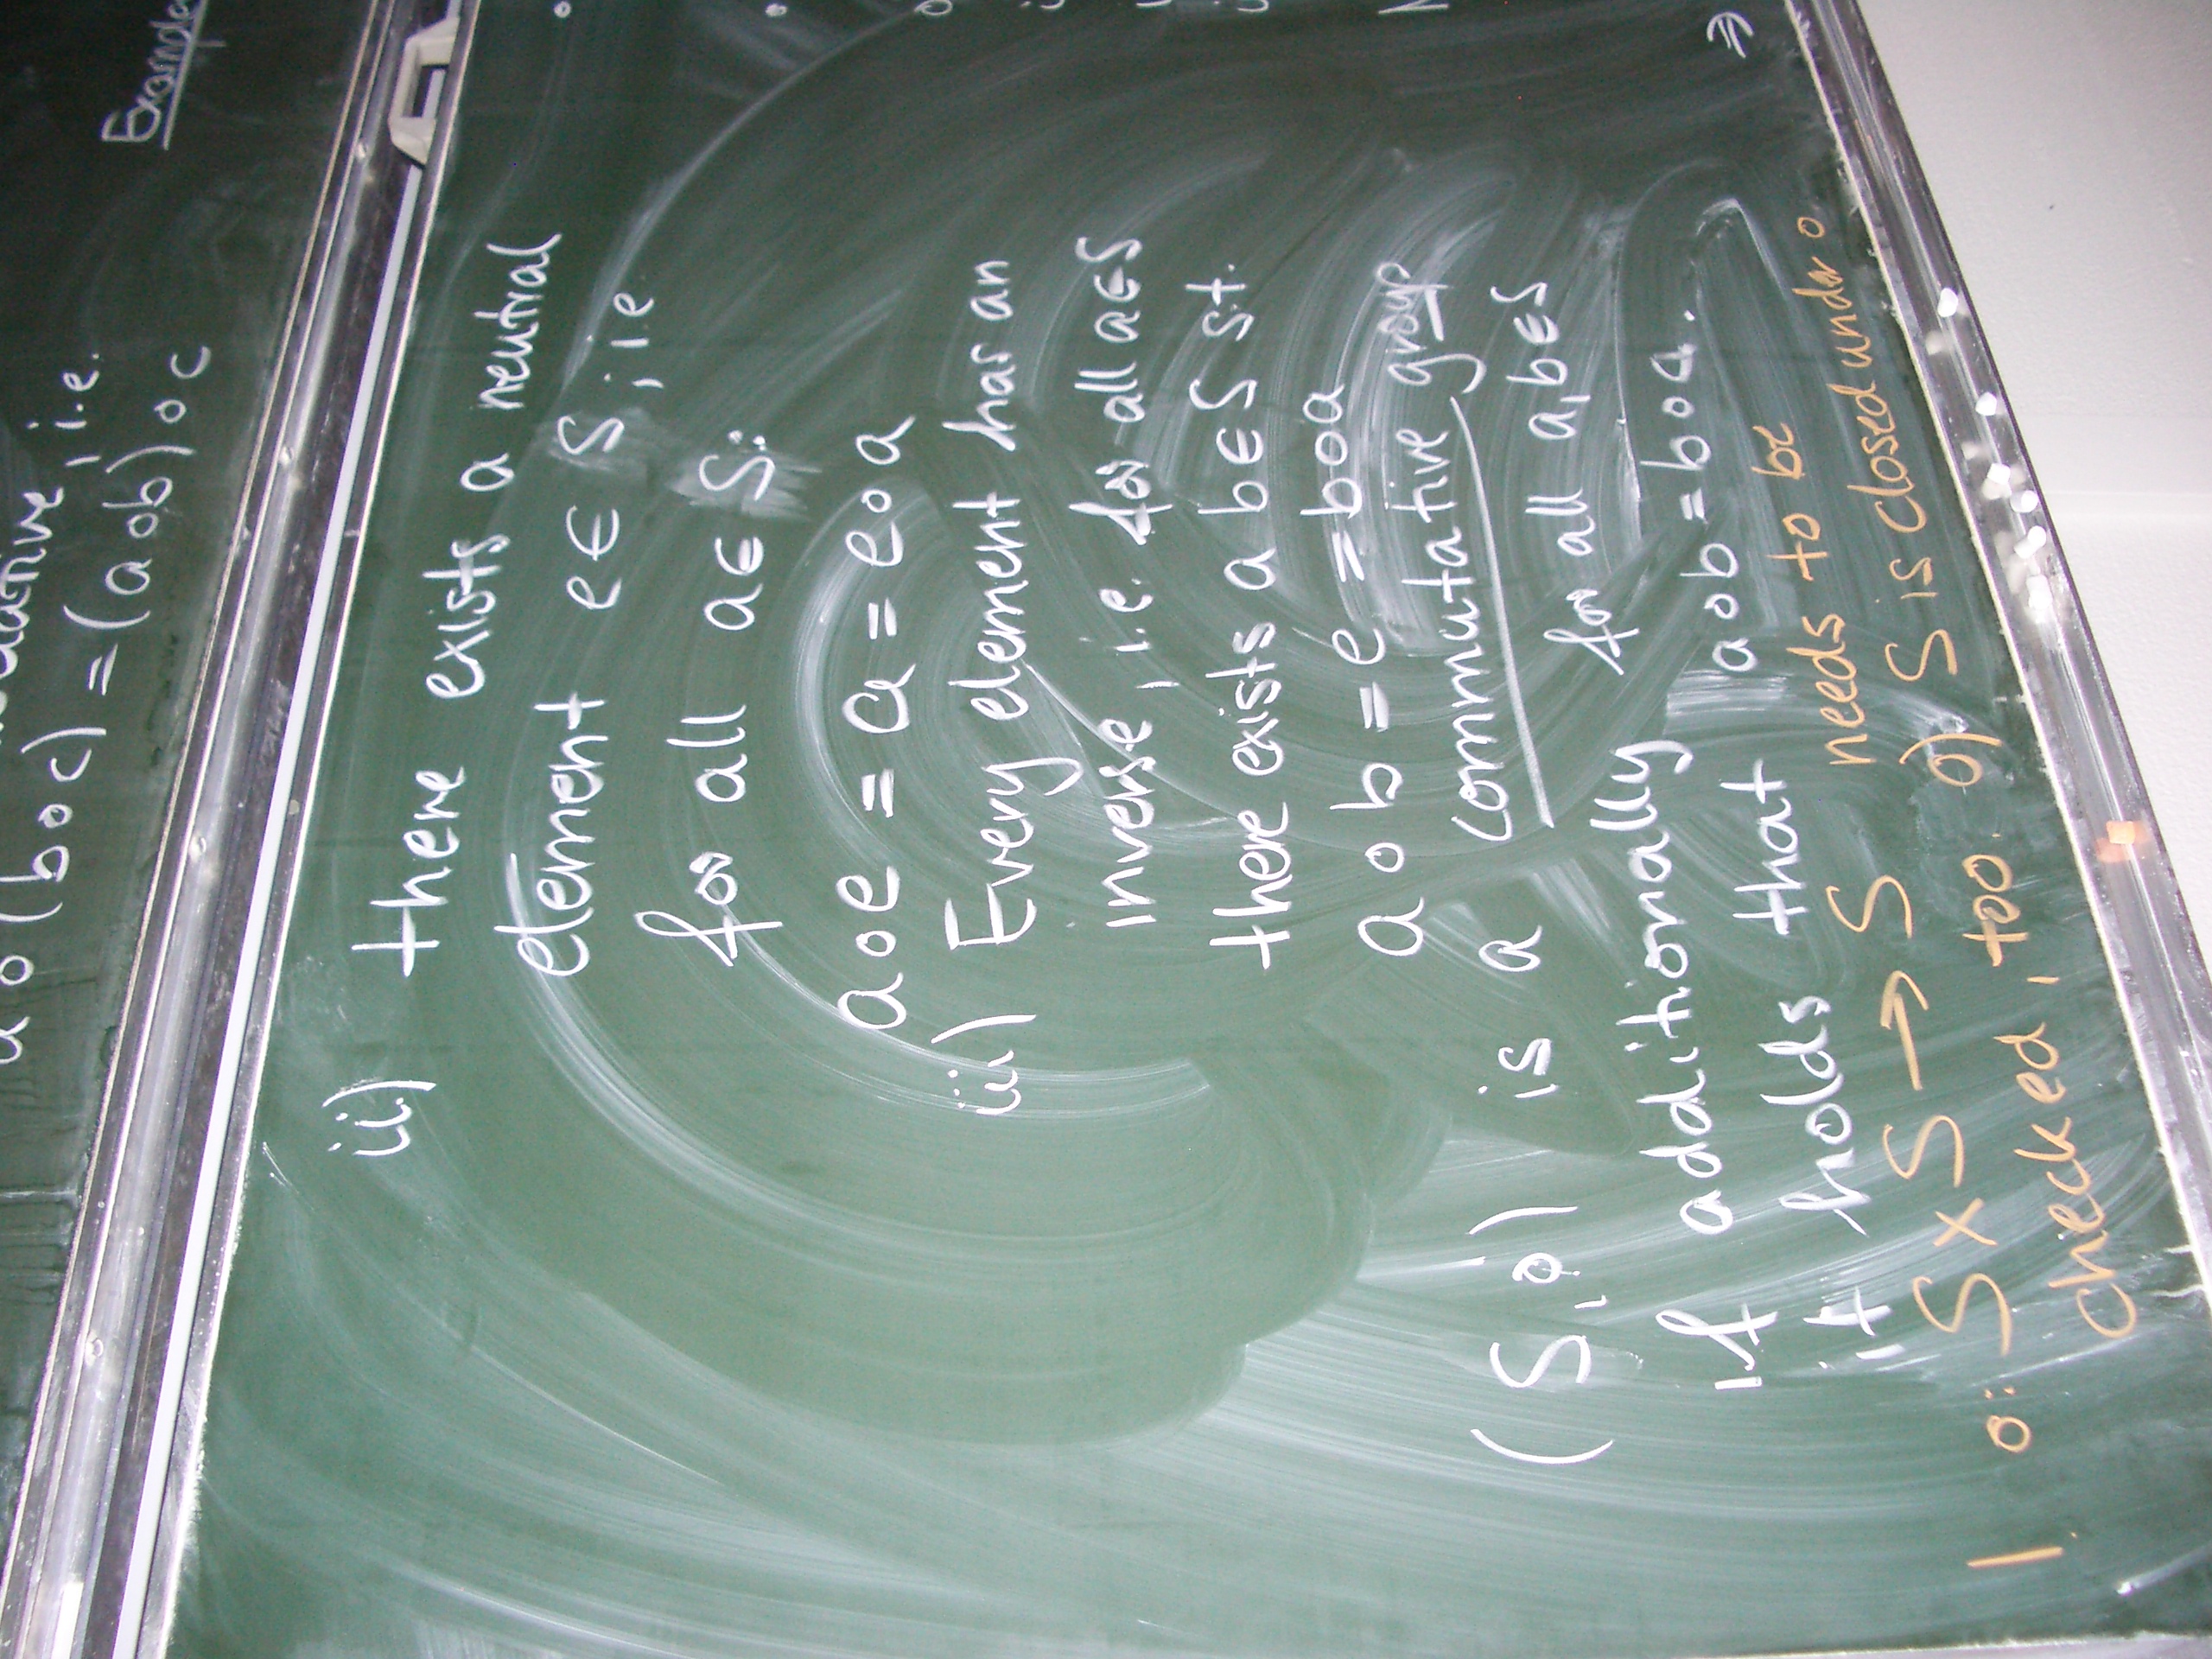 i.e.
a o (b o c) = (a o b) o c
Example
ii) there exists a neutral
element e ∈ S, i.e
for all a ∈ S:
a o e = a = e o a
iii) Every element has an
inverse, i.e. for all a ∈ S
there exists a b ∈ S s.t.
a o b = e = b o a
(S, o) is a commutative group
if additionally for all a, b ∈ S
it holds that a o b = b o a.
! o: S x S → S needs to be
checked, too. o) S is closed under o
⇒